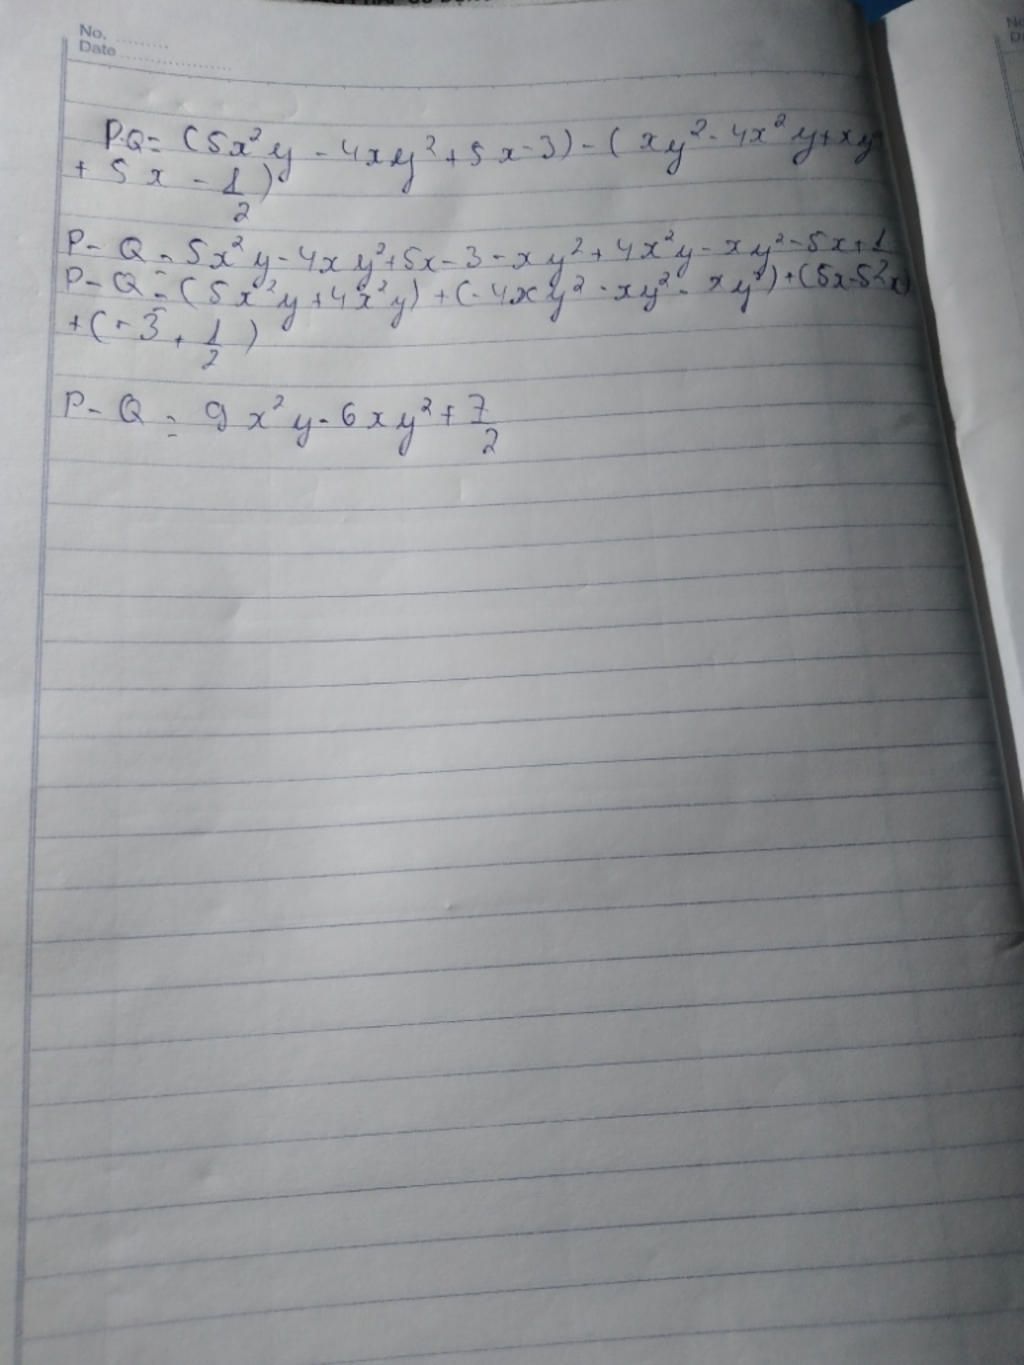 No. ........
Date ................
P-Q= (5x²y - 4xy² + 5x - 3) - ( xy² - 4x²y + xy²
+ 5x - 1/2 )
P- Q = 5x²y - 4xy² + 5x - 3 - xy² + 4x²y - xy² - 5x + 1/2
P- Q = (5x²y + 4x²y) + (- 4xy² - xy² - xy²) + (5x - 5x)
+ (- 3 + 1/2 )
P- Q = 9x²y - 6xy² + 7/2